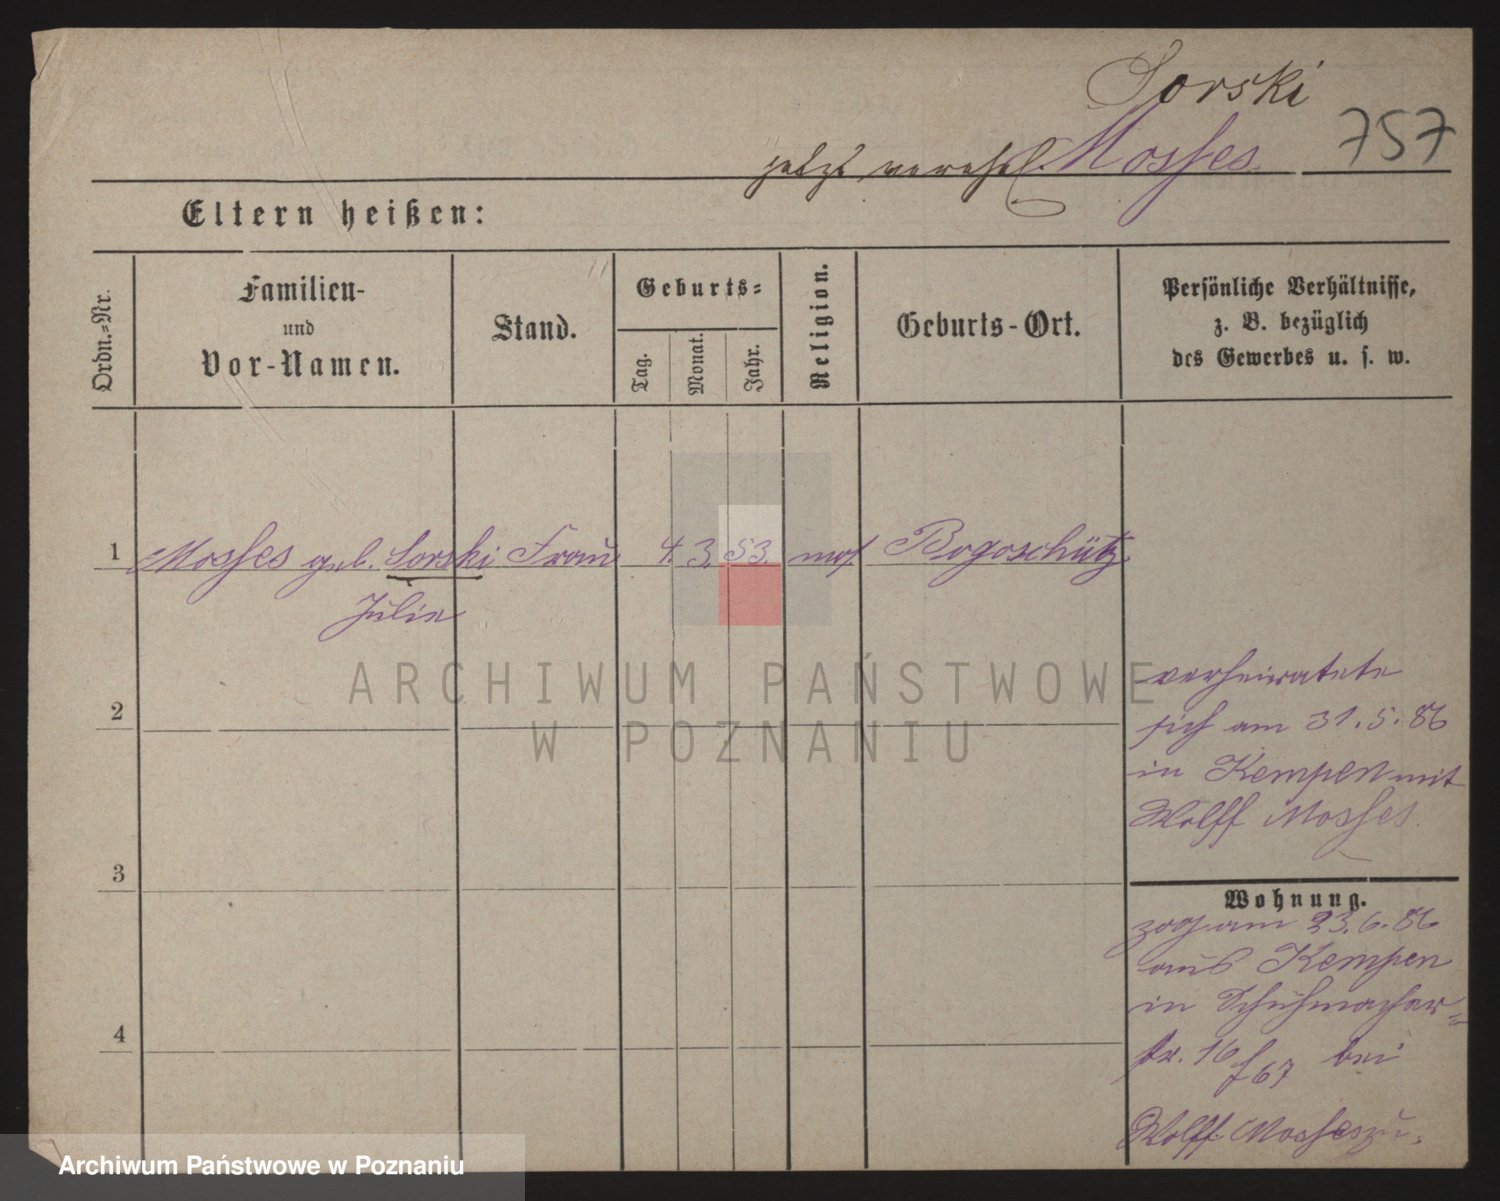 Sorski
jetzt verehel. Mosses
757
Eltern heißen:
Ordn.=Nr.
Familien-
und
Vor-Namen.
Stand.
Geburts=
Tag.
Monat.
Jahr.
Religion.
Geburts-Ort.
Persönliche Verhältnisse,
z. B. bezüglich
des Gewerbes u. s. w.
1
Mosses geb. Sorski Frau 4. 3. 53. mos. Bogoschütz
Julie
ARCHIWUM PAŃSTWOWE
W POZNANIU
verheiratete
sich am 31.5.86
in Kempen mit
Wolff Mosses.
2
3
4
Wohnung.
zog am 23.6.86
aus Kempen
in Schuhmacher=
str. 16 bei
f 67
Wolff Mosses zu.
Archiwum Państwowe w Poznaniu